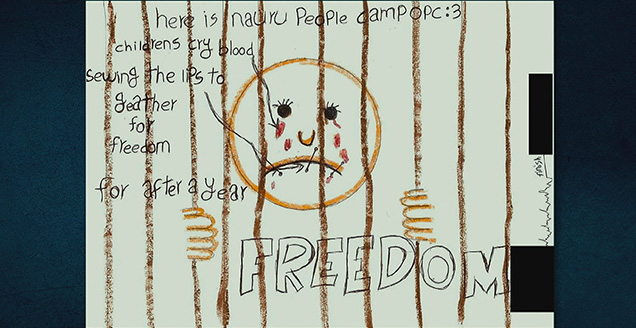 here is nauru People camp OPC:3
childrens cry blood
sewing the lips to
geather
for
freedom
for after a year
FREEDOM